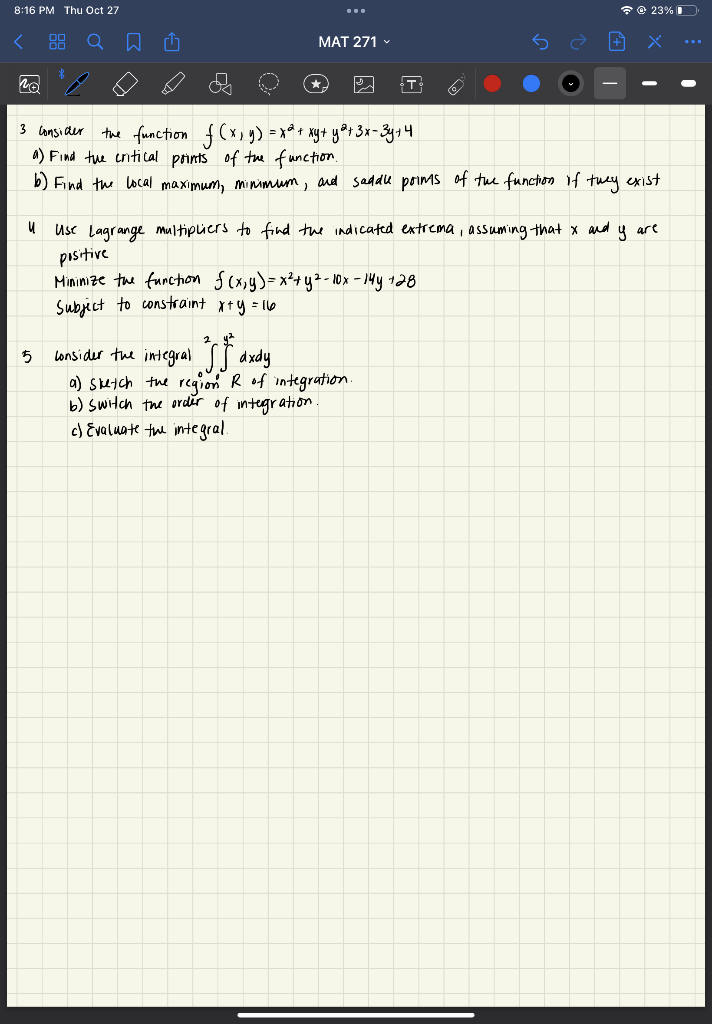 8:16 PM Thu Oct 27
23%
MAT 271
T
3 Consider the function f(x,y) = x² + xy + y² + 3x - 3y + 4
a) Find the critical points of the function.
b) Find the local maximum, minimum, and saddle points of the function if they exist
4 Use Lagrange multipliers to find the indicated extrema, assuming that x and y are
positive
Mininize the function f(x,y) = x² + y² - 10x - 14y + 28
Subject to constraint x + y = 16
5 Consider the integral ∫₀² ∫₀^y² dxdy
a) Sketch the region R of integration.
b) Switch the order of integration.
c) Evaluate the integral.